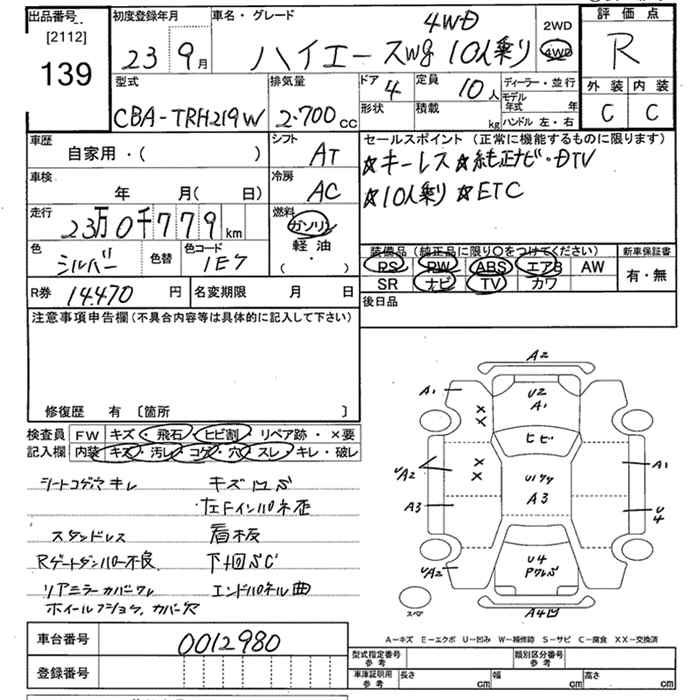 出品番号
[2112]
139
初度登録年月
23 9月
車名・グレード
4WD
ハイエースWg 10人乗り
2WD
4WD
評価点
R
外装 内装
C C
型式
CBA-TRH219W
排気量
2.700cc
ドア 4
形状
定員 10人
積載 kg
ディーラー・並行
モデル年式 年
ハンドル 左・右
車歴
自家用・( )
車検
年 月( 日)
走行
23万0千779km
色
シルバー
色替
色コード
1E7
シフト
AT
冷房
AC
燃料
ガソリン
軽油
( ・ )
セールスポイント (正常に機能するものに限ります)
☆キーレス ☆純正ナビ・DTV
☆10人乗り ☆ETC
装備品 (純正品に限り○をつけてください)
PS PW ABS エアB AW
SR ナビ TV カワ
新車保証書
有・無
後日品
R券 14.470円
名変期限 月 日
注意事項申告欄(不具合内容等は具体的に記入して下さい)
修復歴 有 [箇所 ]
検査員記入欄
FW キズ・飛石・ヒビ割・リペア跡・×要
内装 キズ・汚レ・コゲ・穴・スレ・キレ・破レ
シートコゲ穴キレ キズ凹S
左Fインパネ歪
スタッドレス 看板
Rゲートダンパー不良 下回SC
リアミラーカバーワレ エンドパネル曲
A2
A1
U2
A1
××
ヒビ
××
UA2
A3
A3
A1
U4
U4
UA2
スペア
A-キズ E-エクボ U-凹み W-補修跡 S-サビ C-腐食 XX-交換済
車台番号 0012980
登録番号
型式指定番号 参考
類別区分番号 参考
車庫証明用 参考
長さ cm 幅 cm 高さ cm